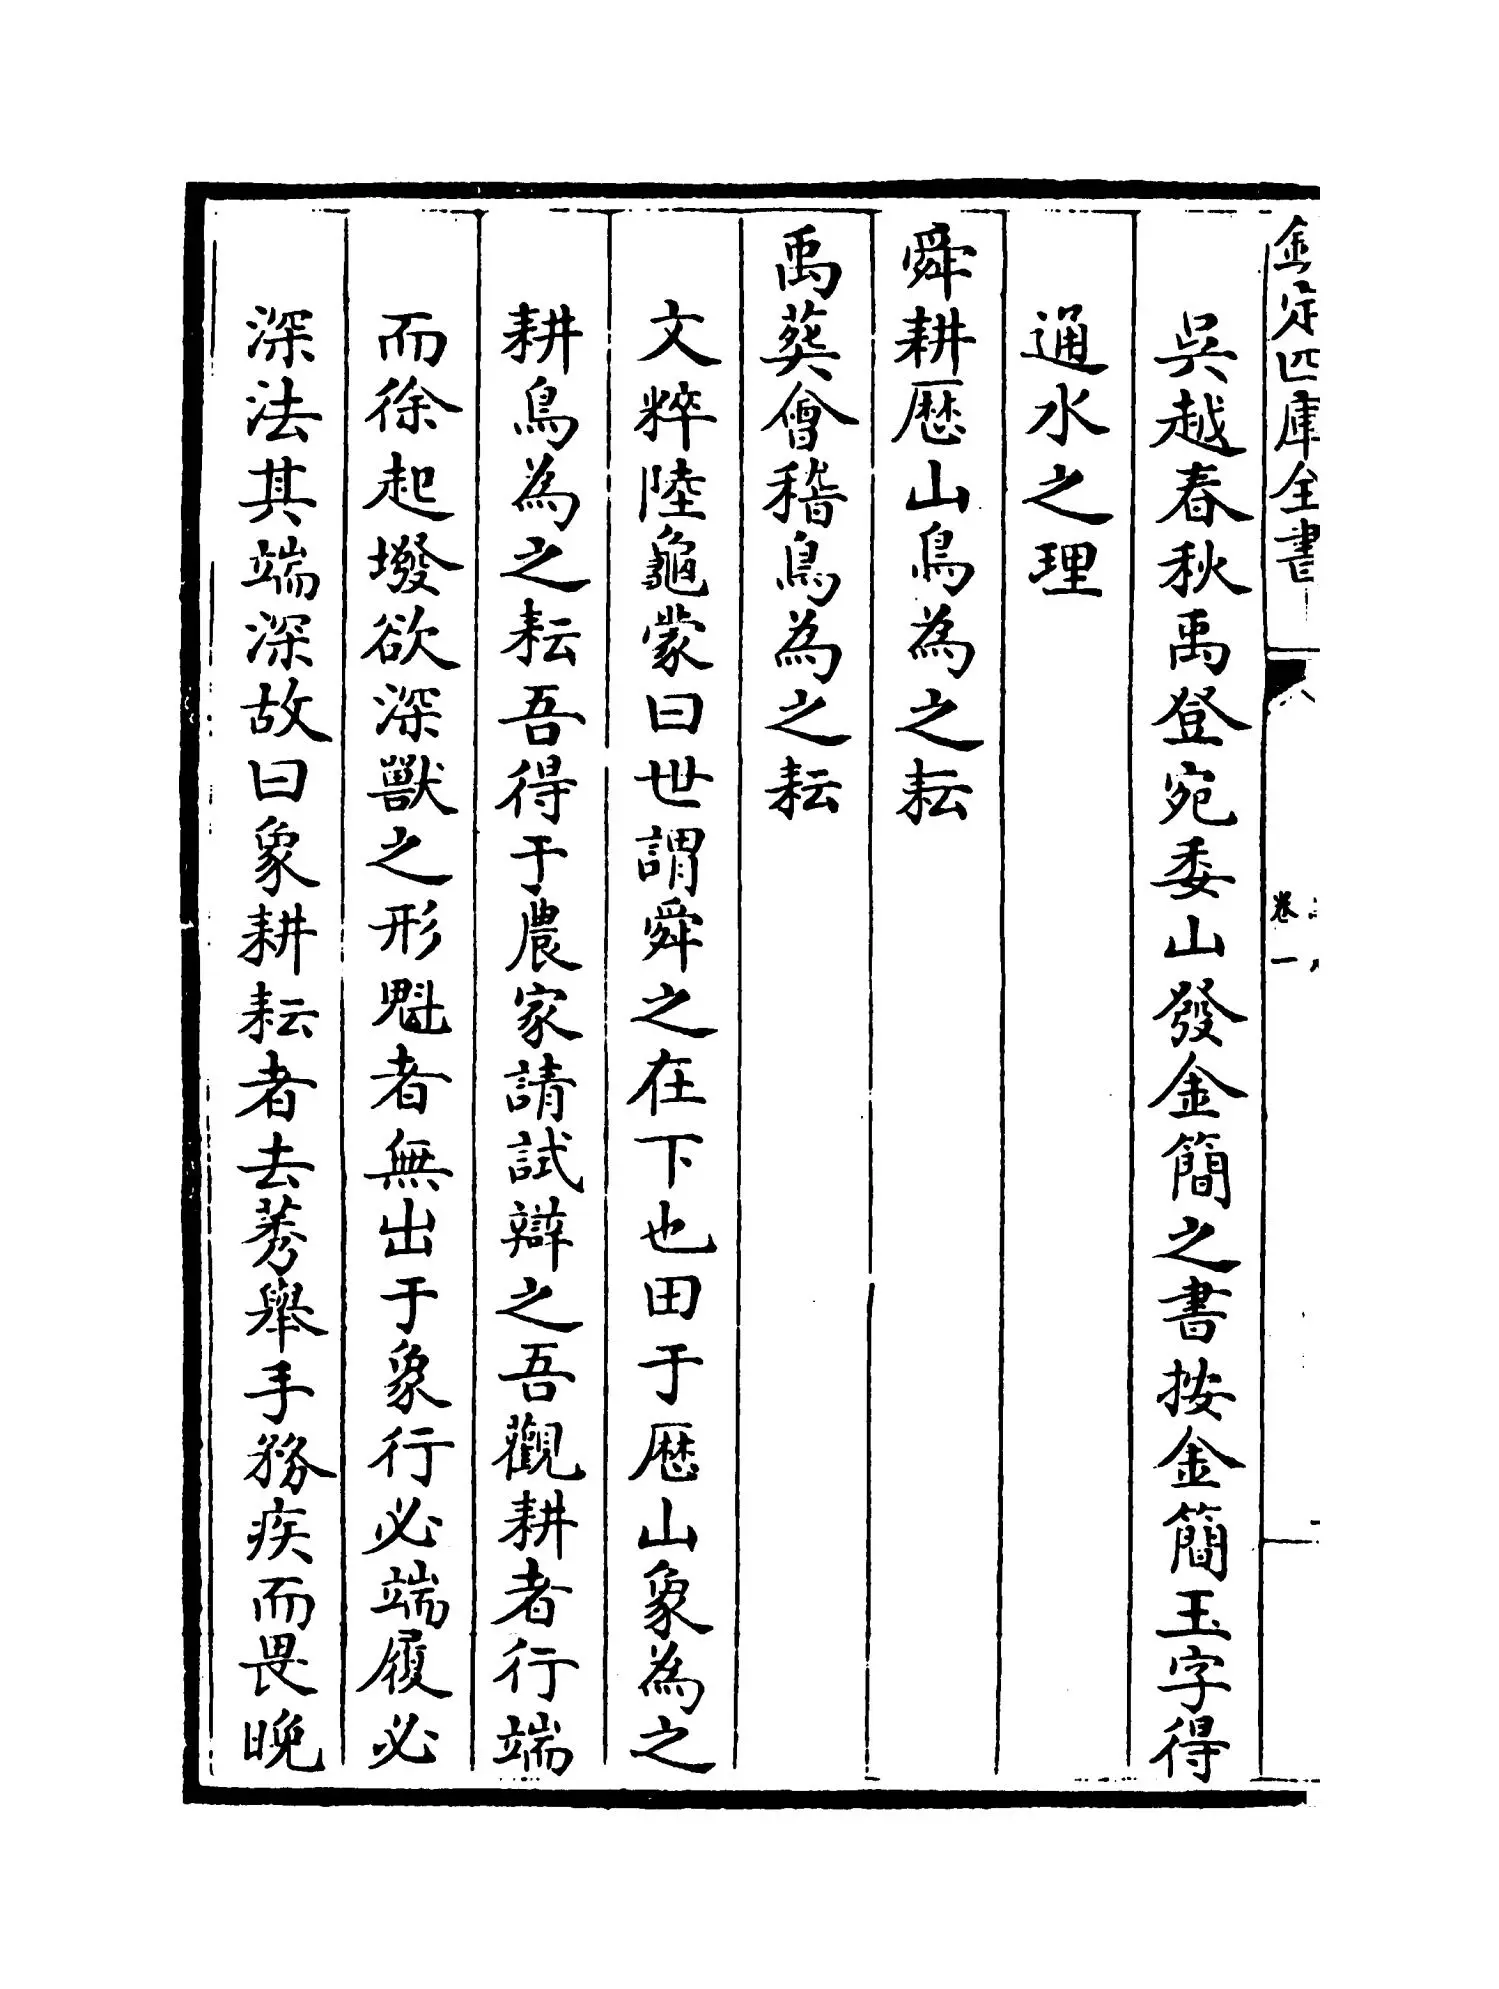 欽定四庫全書
卷一
吳越春秋禹登宛委山發金簡之書按金簡玉字得
通水之理
舜耕歴山鳥為之耘
禹葬會稽鳥為之耘
文粹陸龜蒙曰世謂舜之在下也田于歴山象為之
耕鳥為之耘吾得于農家請試辯之吾觀耕者行端
而徐起墢欲深獸之形魁者無出于象行必端履必
深法其端深故曰象耕耘者去莠舉手務疾而畏晚